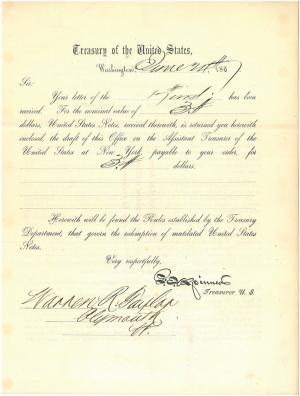 Treasury of the United States,
Washington, June 20th, 186
Sir:
Your letter of the has been
received. For the nominal value of 3.00
dollars, United States Notes, received therewith, is returned you herewith
enclosed, the draft of this Office on the Assistant Treasurer of the
United States at New York, payable to your order, for
3.00 dollars.
Herewith will be found the Rules established by the Treasury
Department, that govern the redemption of mutilated United States
Notes.
Very respectfully,
F. E. Spinner
Treasurer U. S.
Warren R. Taylor
Plymouth
Vt.